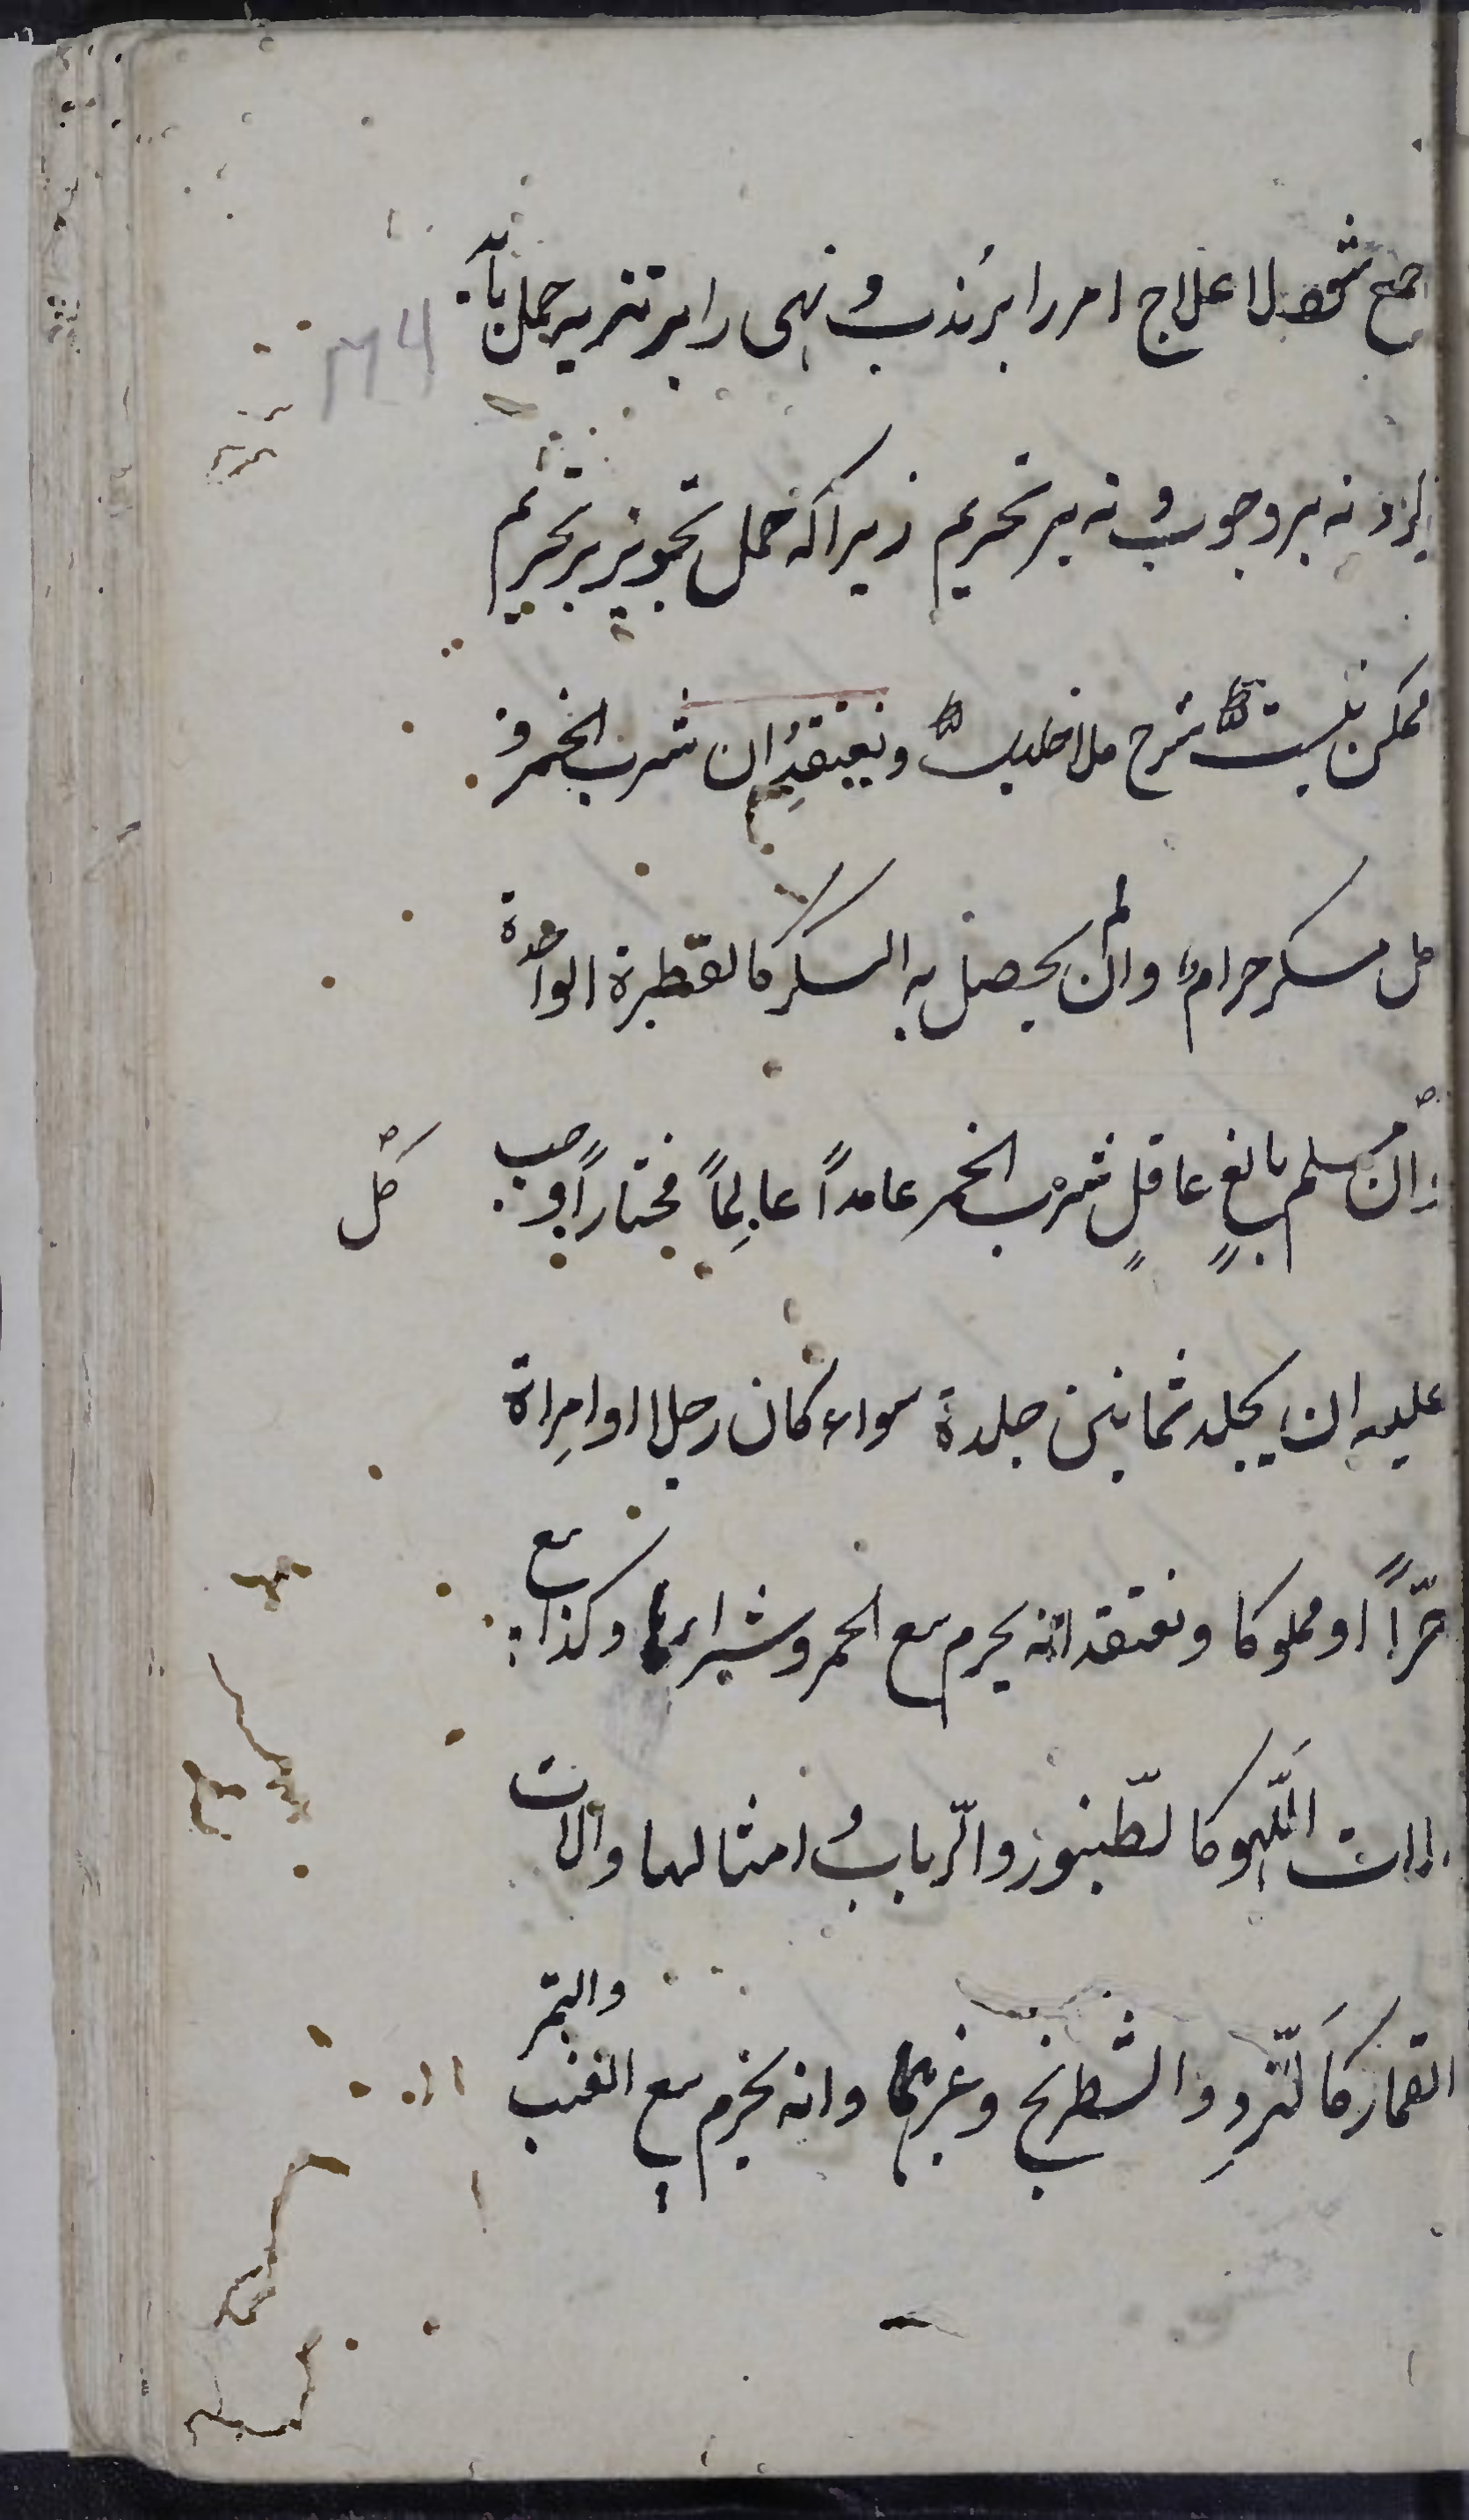 جمع شود لا علاج امر را بر ندب و نهی را بر تنزیه حمل باید
کرد نه بر وجوب و نه بر تحریم زیراکه حمل تجویز بر تحریم
ممکن نیست شرح ملا خلیل ونعتقد ان شرب الخمر و
كل مسكر حرام وان لم يحصل به السكر كالقطرة الواحدة
وان مسلم بالغ عاقل شرب الخمر عامداً عالماً مختاراً وجب
كل
عليه ان يجلد ثمانين جلدة سواء كان رجلا او امراة
حرّاً او مملوكا ونعتقد انه يحرم بيع الخمر وشراءها وكذا بيع
الات اللهو كالطّنبور والرّباب و امثالها والات
القمار كالنّرد والشطرنج وغيرها وانه يحرم بيع العنب والتمر